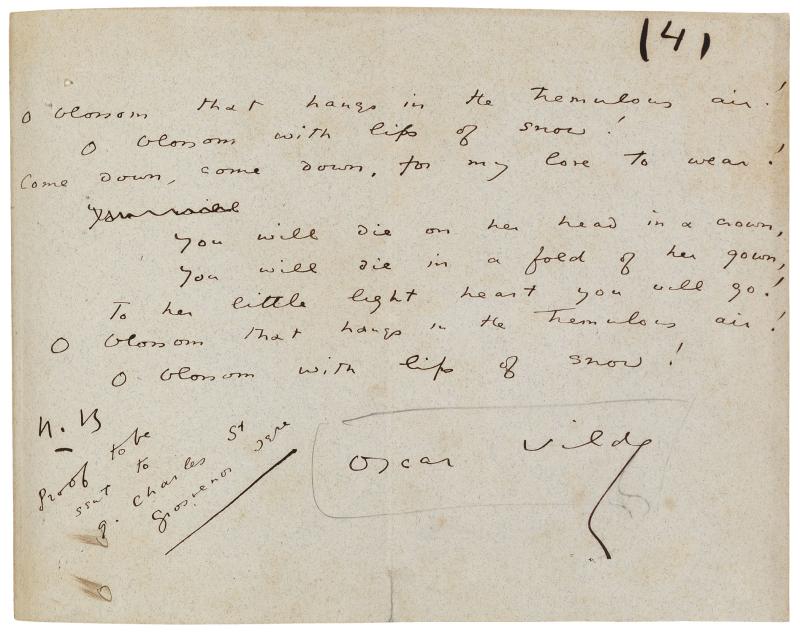 (4)
O blossom that hangs in the tremulous air!
O blossom with lips of snow!
Come down, come down, for my love to wear!
You will
You will die on her head in a crown,
You will die in a fold of her gown,
To her little light heart you will go!
O blossom that hangs in the tremulous air!
O blossom with lips of snow!
N.B
Proof to be
sent to
9. Charles St
Grosvenor Sqre
Oscar Wilde